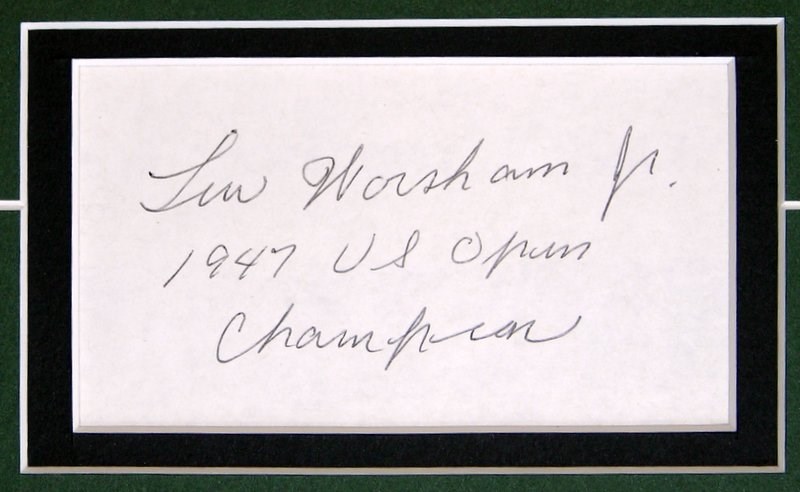 Lew Worsham Jr.
1947 US Open
Champion